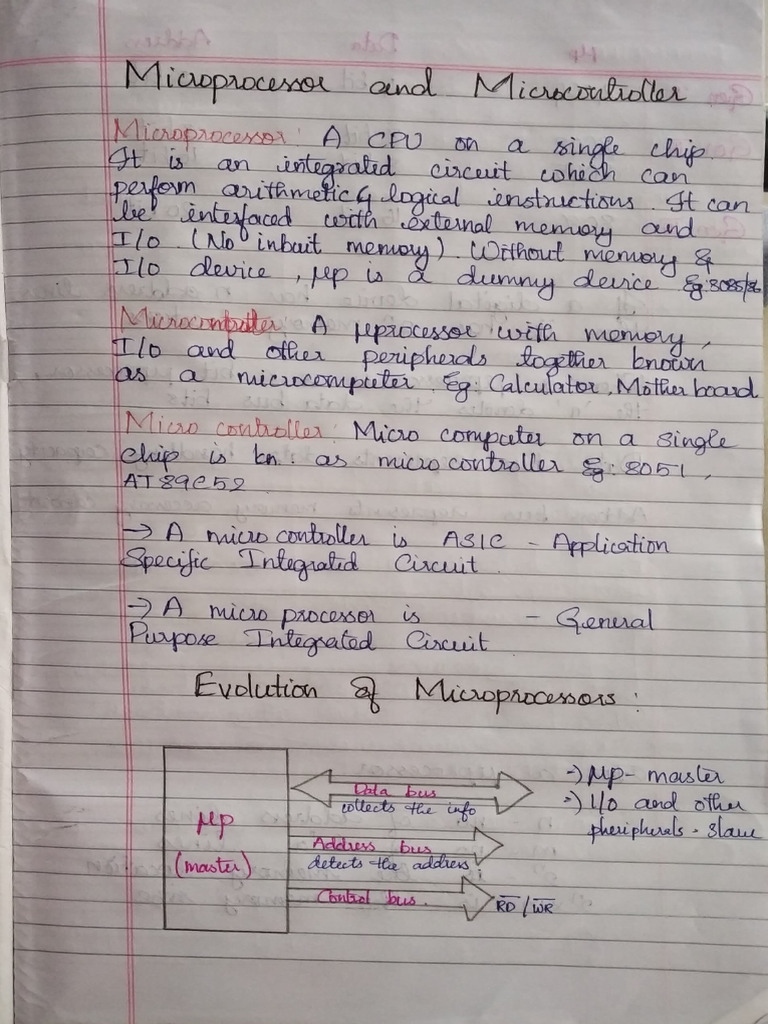 Microprocessor and Microcontroller
Microprocessor: A CPU on a single chip.
It is an integrated circuit which can
perform arithmetic & logical instructions. It can
be interfaced with external memory and
I/O (No inbuit memory). Without memory &
I/O device, μp is a dummy device Eg: 8085/86
Microcontroller: A μprocessor with memory,
I/O and other peripherals together known
as a microcomputer. Eg: Calculator, Mother board
Micro controller: Micro computer on a single
chip is kn: as micro controller Eg: 8051,
AT89C52
→ A micro controller is ASIC - Application
Specific Integrated Circuit.
→ A micro processor is - General
Purpose Integrated Circuit.
Evolution of Microprocessors:
μp
(master)
Data bus
collects the info
Address bus
detects the address
Control bus.
R̅D̅ / W̅R̅
→ μp - master
→ I/O and other
pheripherals - slave